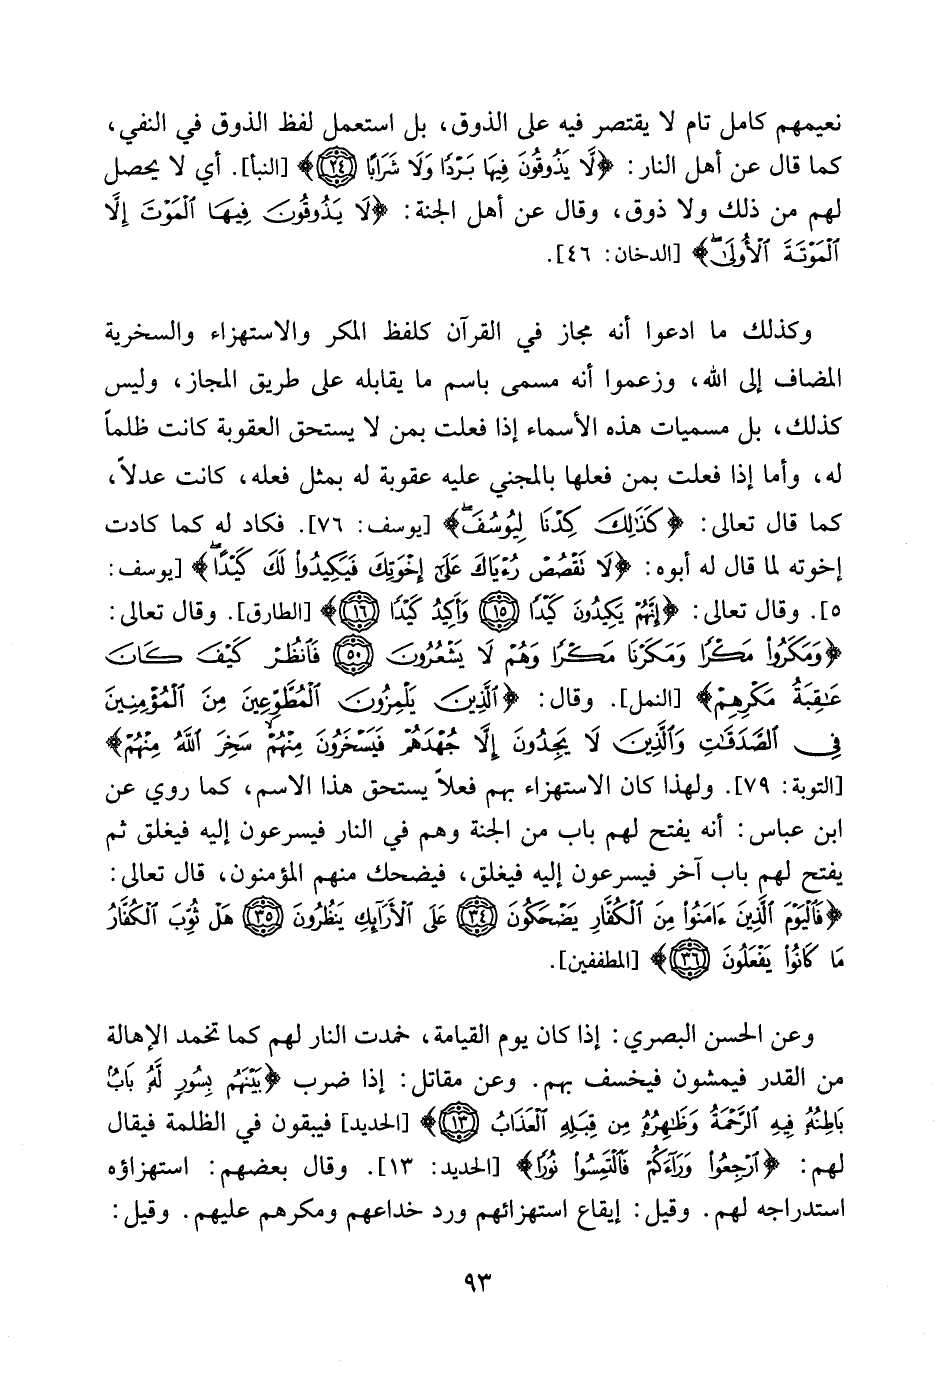 نعيمهم كامل تام لا يقتصر فيه على الذوق، بل استعمل لفظ الذوق في النفي،
كما قال عن أهل النار: ﴿لَّا يَذُوقُونَ فِيهَا بَرْدًا وَلَا شَرَابًا ٢٤﴾ [النبأ]. أي لا يحصل
لهم من ذلك ولا ذوق، وقال عن أهل الجنة: ﴿لَا يَذُوقُونَ فِيهَا ٱلْمَوْتَ إِلَّا
ٱلْمَوْتَةَ ٱلْأُولَىٰۖ﴾ [الدخان: ٤٦].
وكذلك ما ادعوا أنه مجاز في القرآن كلفظ المكر والاستهزاء والسخرية
المضاف إلى الله، وزعموا أنه مسمى باسم ما يقابله على طريق المجاز، وليس
كذلك، بل مسميات هذه الأسماء إذا فعلت بمن لا يستحق العقوبة كانت ظلماً
له، وأما إذا فعلت بمن فعلها بالمجني عليه عقوبة له بمثل فعله، كانت عدلاً،
كما قال تعالى: ﴿كَذَٰلِكَ كِدْنَا لِيُوسُفَۖ﴾ [يوسف: ٧٦]. فكاد له كما كادت
إخوته لما قال له أبوه: ﴿لَا تَقْصُصْ رُءْيَاكَ عَلَىٰٓ إِخْوَتِكَ فَيَكِيدُوا۟ لَكَ كَيْدًاۖ﴾ [يوسف:
٥]. وقال تعالى: ﴿إِنَّهُمْ يَكِيدُونَ كَيْدًا ١٥ وَأَكِيدُ كَيْدًا ١٦﴾ [الطارق]. وقال تعالى:
﴿وَمَكَرُوا۟ مَكْرًا وَمَكَرْنَا مَكْرًا وَهُمْ لَا يَشْعُرُونَ ٥٠ فَٱنظُرْ كَيْفَ كَانَ
عَٰقِبَةُ مَكْرِهِمْ﴾ [النمل]. وقال: ﴿ٱلَّذِينَ يَلْمِزُونَ ٱلْمُطَّوِّعِينَ مِنَ ٱلْمُؤْمِنِينَ
فِى ٱلصَّدَقَٰتِ وَٱلَّذِينَ لَا يَجِدُونَ إِلَّا جُهْدَهُمْ فَيَسْخَرُونَ مِنْهُمْۙ سَخِرَ ٱللَّهُ مِنْهُمْ﴾
[التوبة: ٧٩]. ولهذا كان الاستهزاء بهم فعلاً يستحق هذا الاسم، كما روي عن
ابن عباس: أنه يفتح لهم باب من الجنة وهم في النار فيسرعون إليه فيغلق ثم
يفتح لهم باب آخر فيسرعون إليه فيغلق، فيضحك منهم المؤمنون، قال تعالى:
﴿فَٱلْيَوْمَ ٱلَّذِينَ ءَامَنُوا۟ مِنَ ٱلْكُفَّارِ يَضْحَكُونَ ٣٤ عَلَى ٱلْأَرَآئِكِ يَنظُرُونَ ٣٥ هَلْ ثُوِّبَ ٱلْكُفَّارُ
مَا كَانُوا۟ يَفْعَلُونَ ٣٦﴾ [المطففين].
وعن الحسن البصري: إذا كان يوم القيامة، خمدت النار لهم كما تخمد الإهالة
من القدر فيمشون فيخسف بهم. وعن مقاتل: إذا ضرب ﴿بَيْنَهُم بِسُورٍ لَّهُۥ بَابٌۢ
بَاطِنُهُۥ فِيهِ ٱلرَّحْمَةُ وَظَٰهِرُهُۥ مِن قِبَلِهِ ٱلْعَذَابُ ١٣﴾ [الحديد] فيبقون في الظلمة فيقال
لهم: ﴿ٱرْجِعُوا۟ وَرَآءَكُمْ فَٱلْتَمِسُوا۟ نُورًا﴾ [الحديد: ١٣]. وقال بعضهم: استهزاؤه
استدراجه لهم. وقيل: إيقاع استهزائهم ورد خداعهم ومكرهم عليهم. وقيل:
٩٣